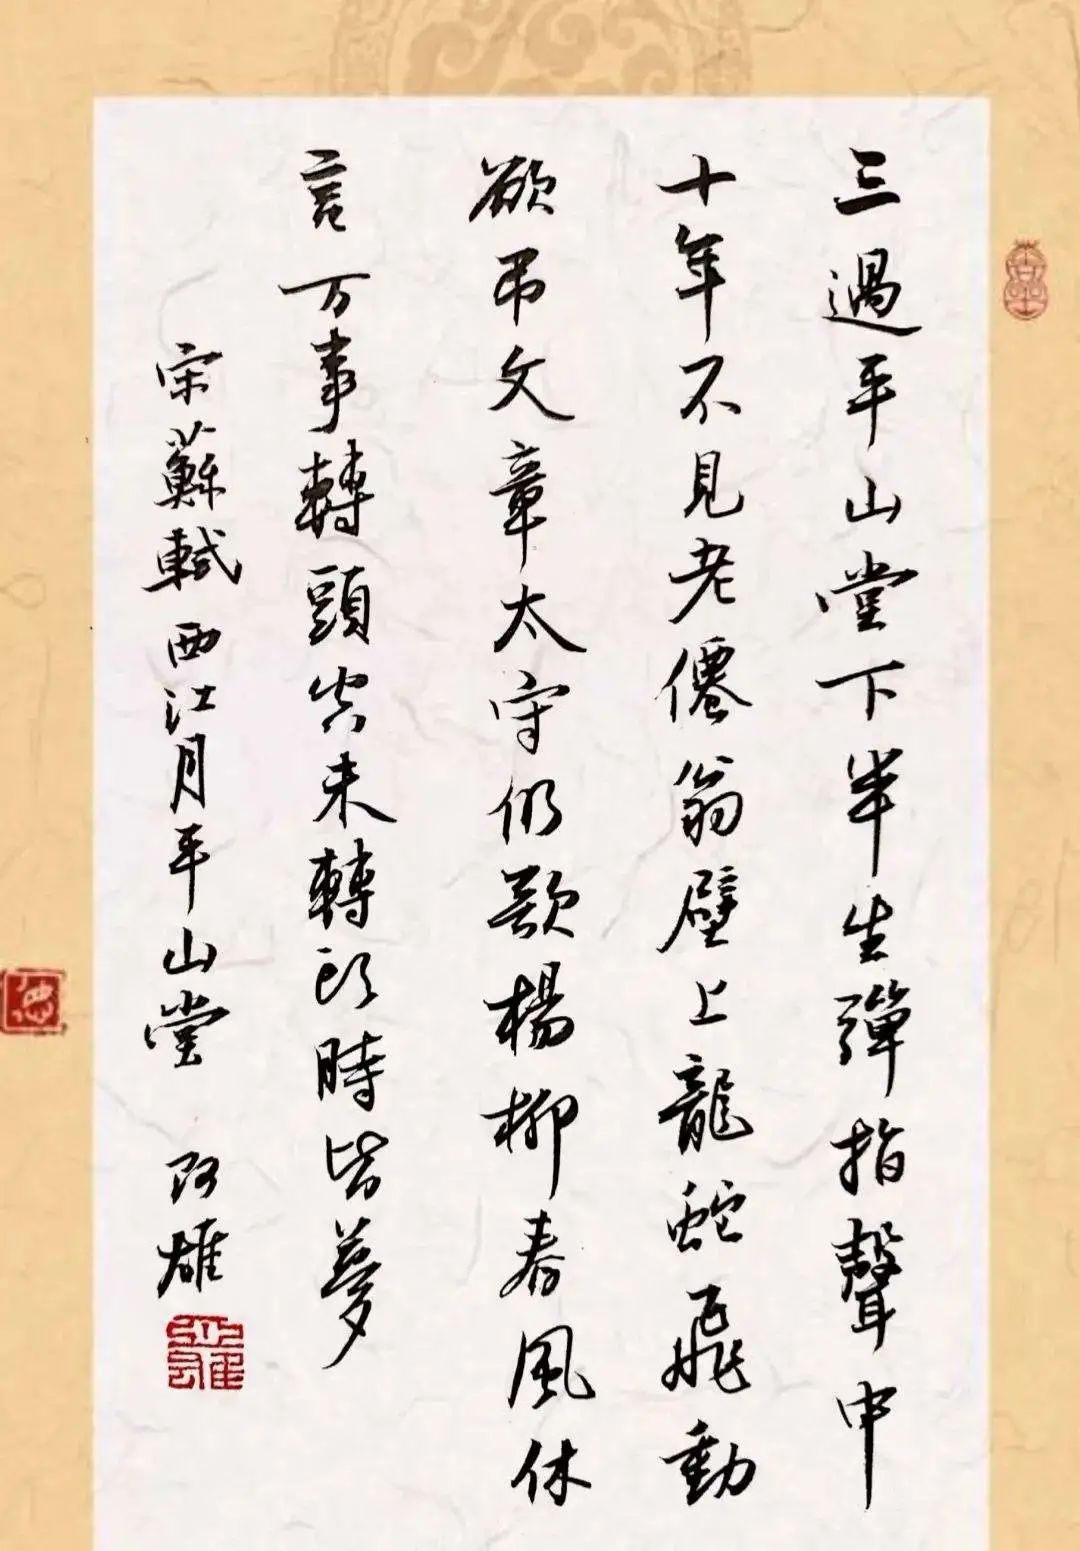 三過平山堂下半生彈指聲中
十年不見老僊翁壁上龍蛇飛動
欲吊文章太守仍歌楊柳春風休
言万事轉頭空未轉頭時皆夢
宋蘇軾西江月平山堂 阿雄